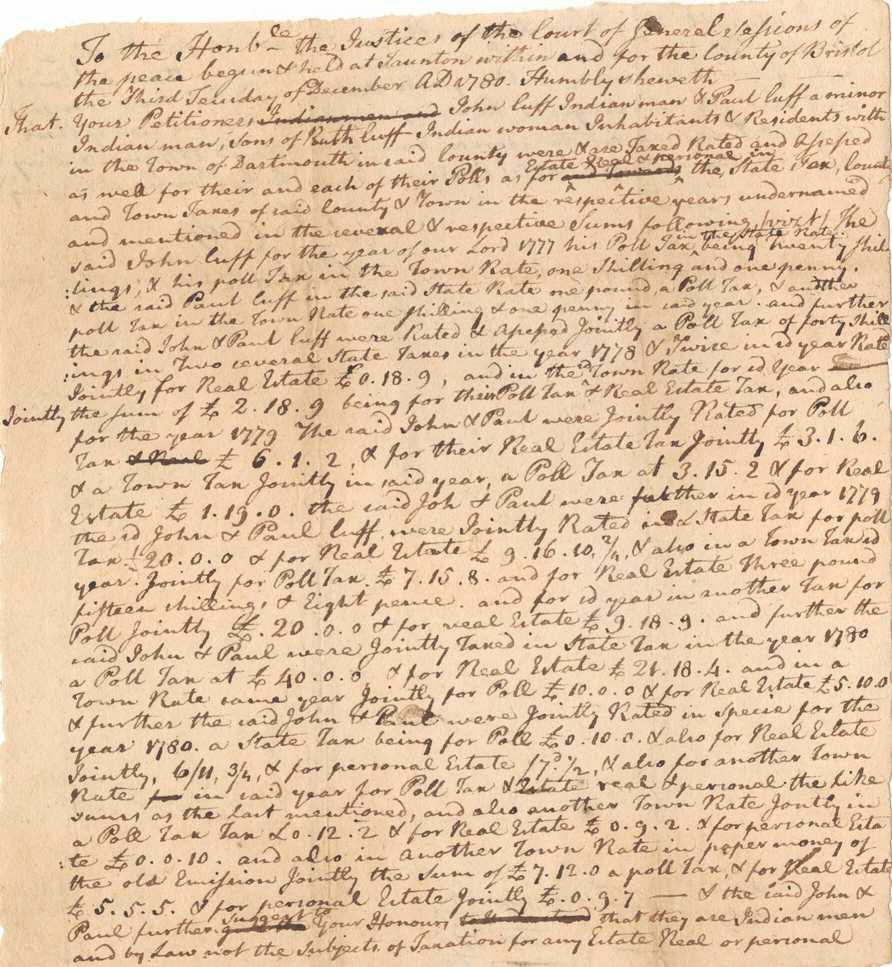 To the Honble the Justices of the Court of General Sessions of
the peace begun & held at Taunton within and for the County of Bristol
the Third Teusday of December AD 1780. Humbly sheweth
That. Your Petitioners Indian men and John Cuff Indian man & Paul Cuff a minor
Indian man, Sons of Ruth Cuff Indian woman Inhabitants & Residents with
in the Town of Dartmouth in said County were & are Taxed Rated and Assessed
Estate Real & personal in
as well for their and each of their Polls as for the State Tax, County
and Town Taxes of said County & Town in the respective years undernamed
and mentioned in the several & respective Sums following (vizt) The
in the State Rate
said John Cuff for the year of our Lord 1777 his Poll Tax being Twenty Shil
:lings, & his poll Tax in the Town Rate, one Shilling and one penny.
& the said Paul Cuff in the said State Rate one pound, a Poll Tax, & another
poll Tax in the Town Rate one shilling & one penny in said year. and further
the said John & Paul Cuff were Rated & Assessed Jointly a Poll Tax of forty Shill
:ings in Two several State Taxes in the year 1778 & Twice in sd year Rated
Jointly for Real Estate £0.18.9, and in the Town Rate for sd Year
Jointly the sum of £2.18.9 being for their Poll Tax & Real Estate Tax, and also
for the year 1779 The said John & Paul were Jointly Rated for Poll
Tax & Real £6.1.2, & for their Real Estate Tax Jointly £3.1.6.
& a Town Tax Jointly in said year, a Poll Tax at 3.15.2 & for Real
Estate £1.19.0. the said Joh & Paul were further in sd year 1779
the sd John & Paul Cuff were Jointly Rated in a State Tax for poll
Tax £20.0.0 & for Real Estate £9.16.10,2/4, & also in a Town Tax sd
year. Jointly for Poll Tax. £7.15.8. and for Real Estate Three pound
fifteen shillings & Eight pence. and for sd year in another Tax for
Poll Jointly £.20.0.0 & for real Estate £9.18.9. and further the
said John & Paul were Jointly Taxed in State Tax in the year 1780
a Poll Tax at £40.0.0, & for Real Estate £21.18.4. and in a
Town Rate same year Jointly for Poll £10.0.0 & for Real Estate £5.10.0
& further the said John & Paul were Jointly Rated in Specie for the
year 1780. a State Tax being for Poll £0.10.0. & also for Real Estate
Jointly, 6/11, 3/4, & for personal Estate /7d.1/2, & also for another Town
Rate for in said year for Poll Tax & Estate real & personal the like
sums as the last mentioned, and also another Town Rate Jontly in
a Poll Tax Tax £0.12.2 & for Real Estate £0.9.2. & for personal Esta
:te £0.0.10. and also in another Town Rate in paper money of
the old Emission Jointly the Sum of £7.12.0 a poll Tax, & for Real Estate
£5.5.5. & for personal Estate Jointly £.0.9.7 — & the said John &
suggest to
Paul further Your Honours that they are Indian men
and by Law not the Subjects of Taxation for any Estate Real or personal